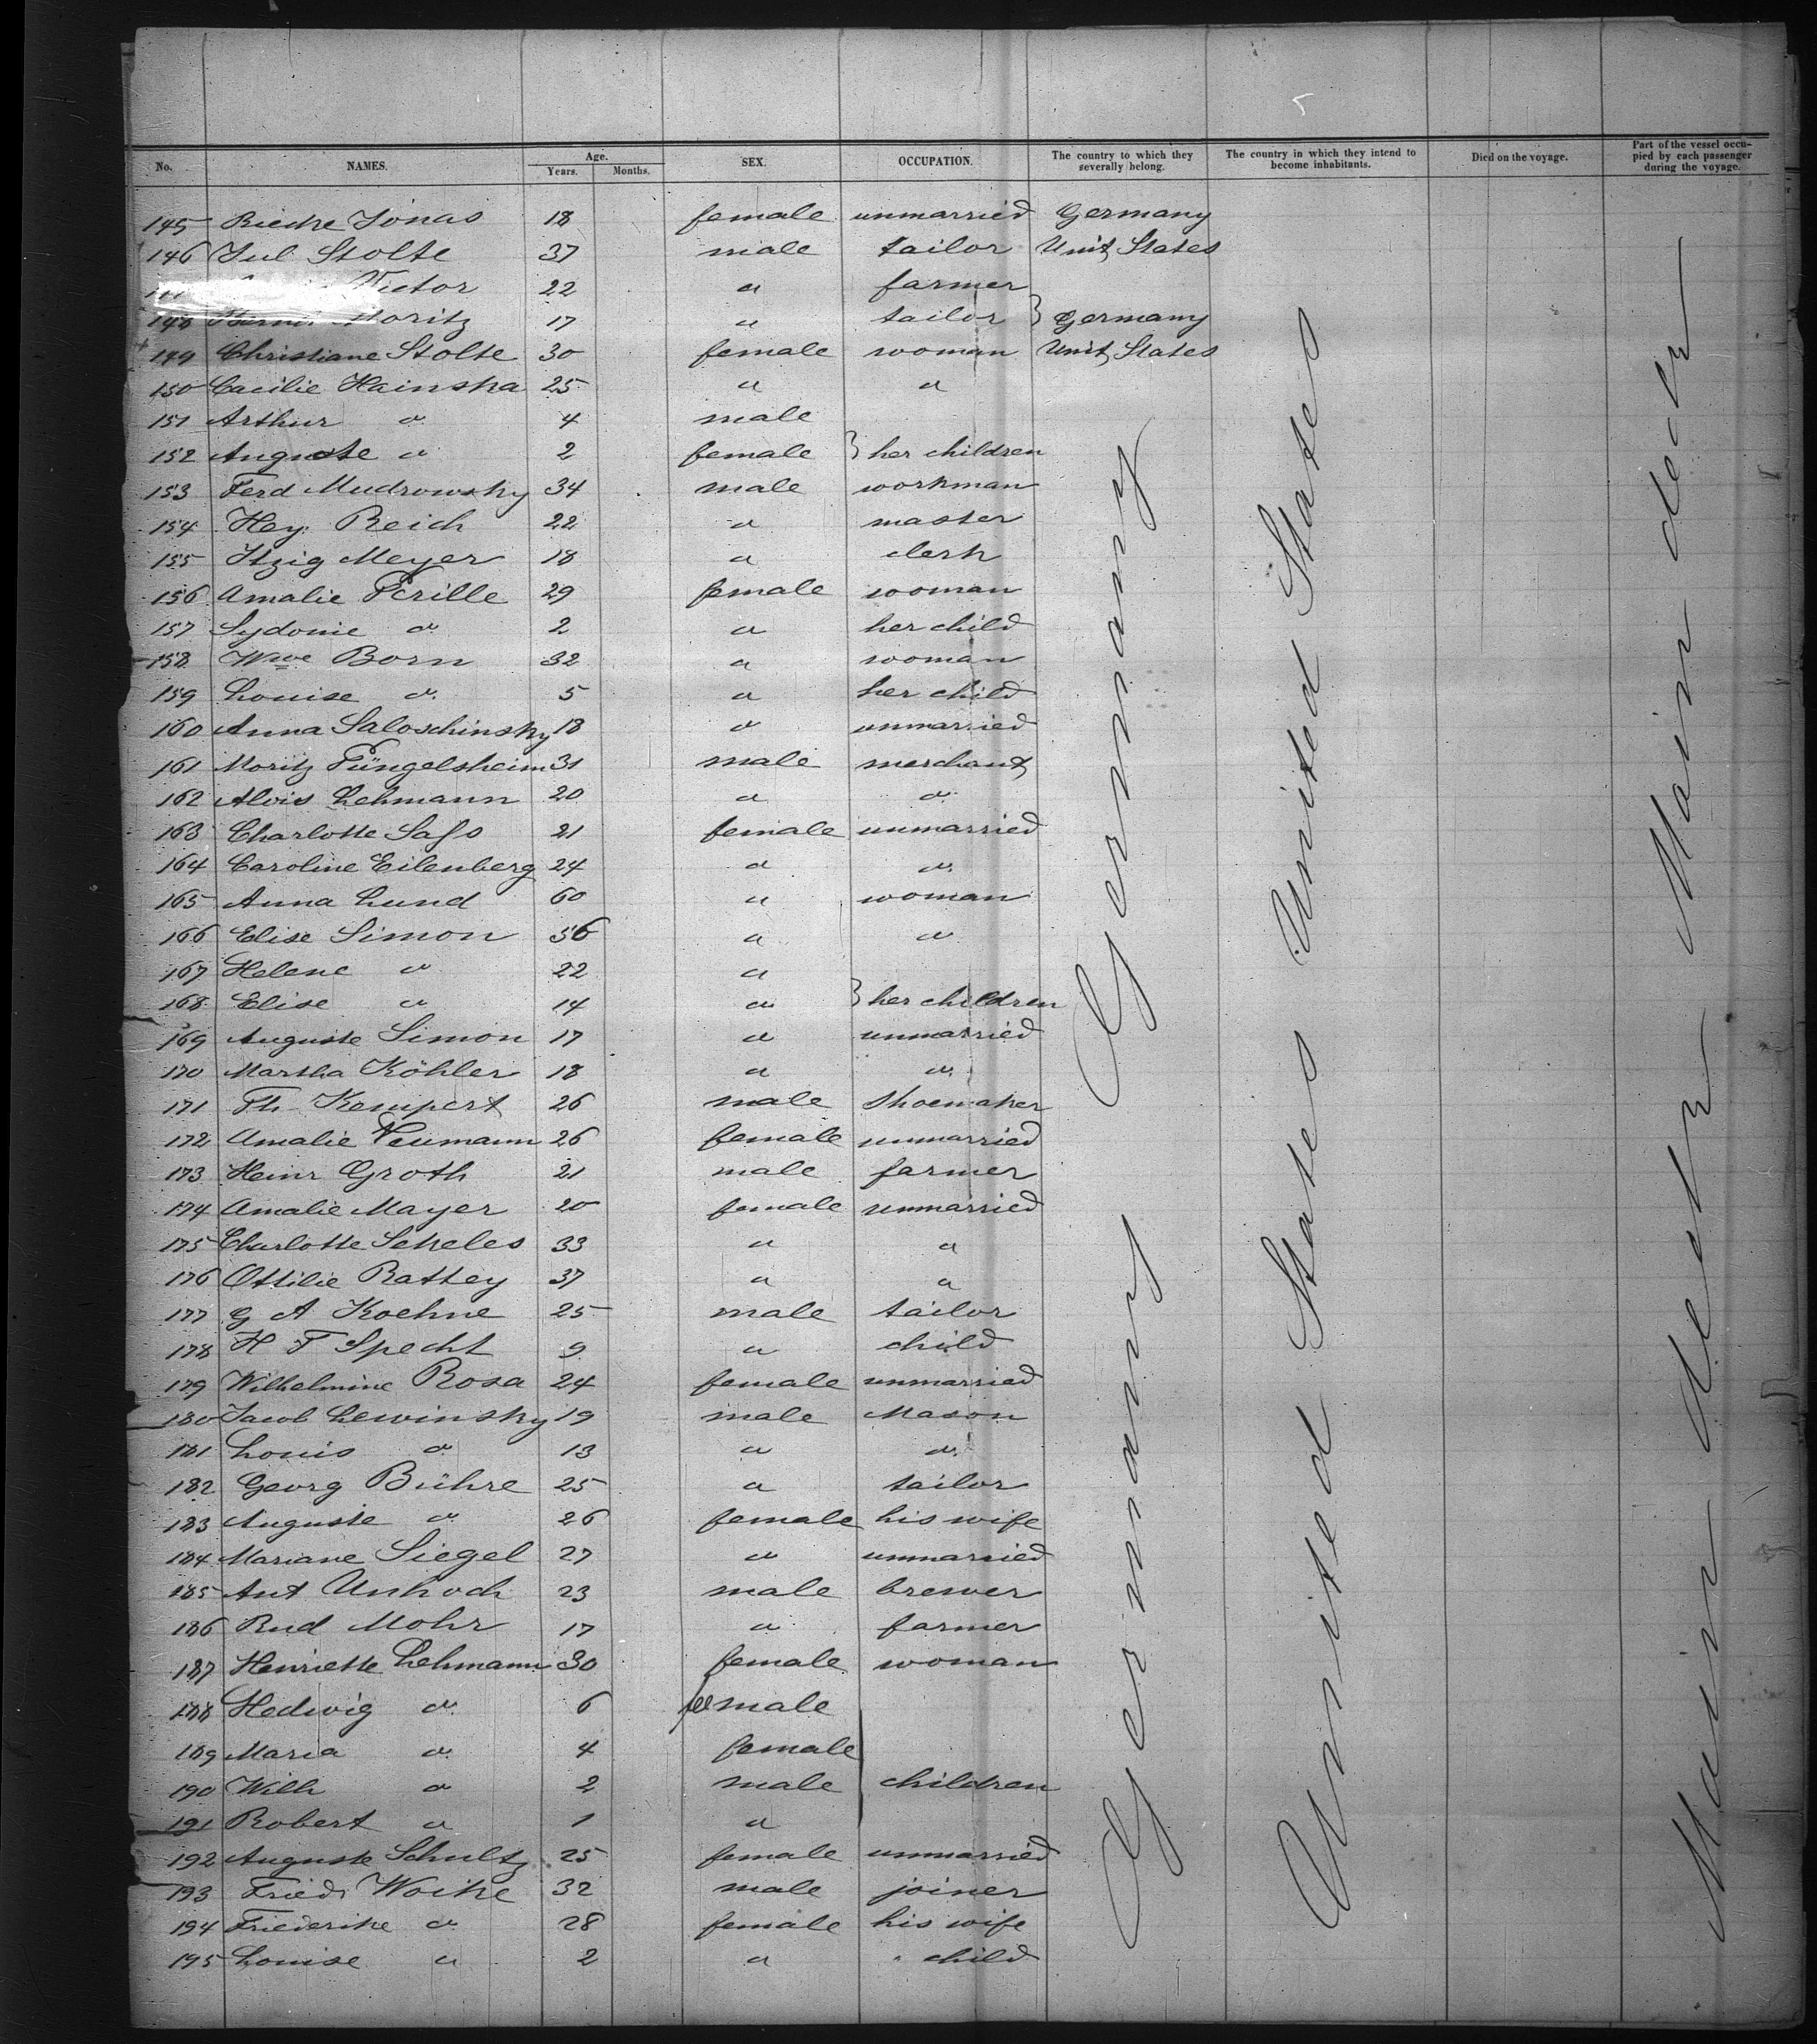 No. NAMES. Age. Years. Months. SEX. OCCUPATION. The country to which they severally belong. The country in which they intend to become inhabitants. Died on the voyage. Part of the vessel occupied by each passenger during the voyage.
145 Rieckе Jonas 18 female unmarried Germany
146 Jul. Stolte 37 male tailor Unit States
Victor 22 " farmer
148 Moritz 17 " tailor } Germany
149 Christiane Stolte 30 female woman Unit States
150 Cacilie Hainska 25 " "
151 Arthur " 4 male
152 Auguste " 2 female } her children
153 Ferd Mudrowsky 34 male workman
154 Hey. Reich 22 " master
155 Itzig Meyer 18 " clerk
156 Amalie Perille 29 female woman
157 Sydonie " 2 " her child
158 Wwe Born 32 " woman
159 Louise " 5 " her child
160 Anna Saloschinsky 18 " unmarried
161 Moritz Füngelsheim 31 male merchant
162 Alois Lehmann 20 " "
163 Charlotte Sass 21 female unmarried
164 Caroline Eilenberg 24 " "
165 Anna Lund 60 " woman
166 Elise Simon 56 " "
167 Helene " 22 "
168 Elise " 14 " } her children
169 Auguste Simon 17 " unmarried
170 Martha Köhler 18 " "
171 Th Kempert 26 male shoemaker
172 Amalie Neumann 26 female unmarried
173 Heinr Groth 21 male farmer
174 Amalie Mayer 20 female unmarried
175 Charlotte Sekeles 33 " "
176 Ottilie Rattey 37 " "
177 G A Koehne 25 male tailor
178 H F Specht 9 " child
179 Wilhelmine Rosa 24 female unmarried
180 Jacob Lewinsky 19 male Mason
181 Louis " 13 " "
182 Georg Bühre 25 " tailor
183 Auguste " 26 female his wife
184 Mariane Siegel 27 " unmarried
185 Ant Unkoch 23 male brewer
186 Rud Mohr 17 " farmer
187 Henriette Lehmann 30 female woman
188 Hedwig " 6 female
189 Maria " 4 female
190 Wilh " 2 male children
191 Robert " 1 "
192 Auguste Schultz 25 female unmarried
193 Friedr Woike 32 male joiner
194 Friederike " 28 female his wife
195 Louise " 2 " " child
Germany Germany
United States United States
Main deck Main deck